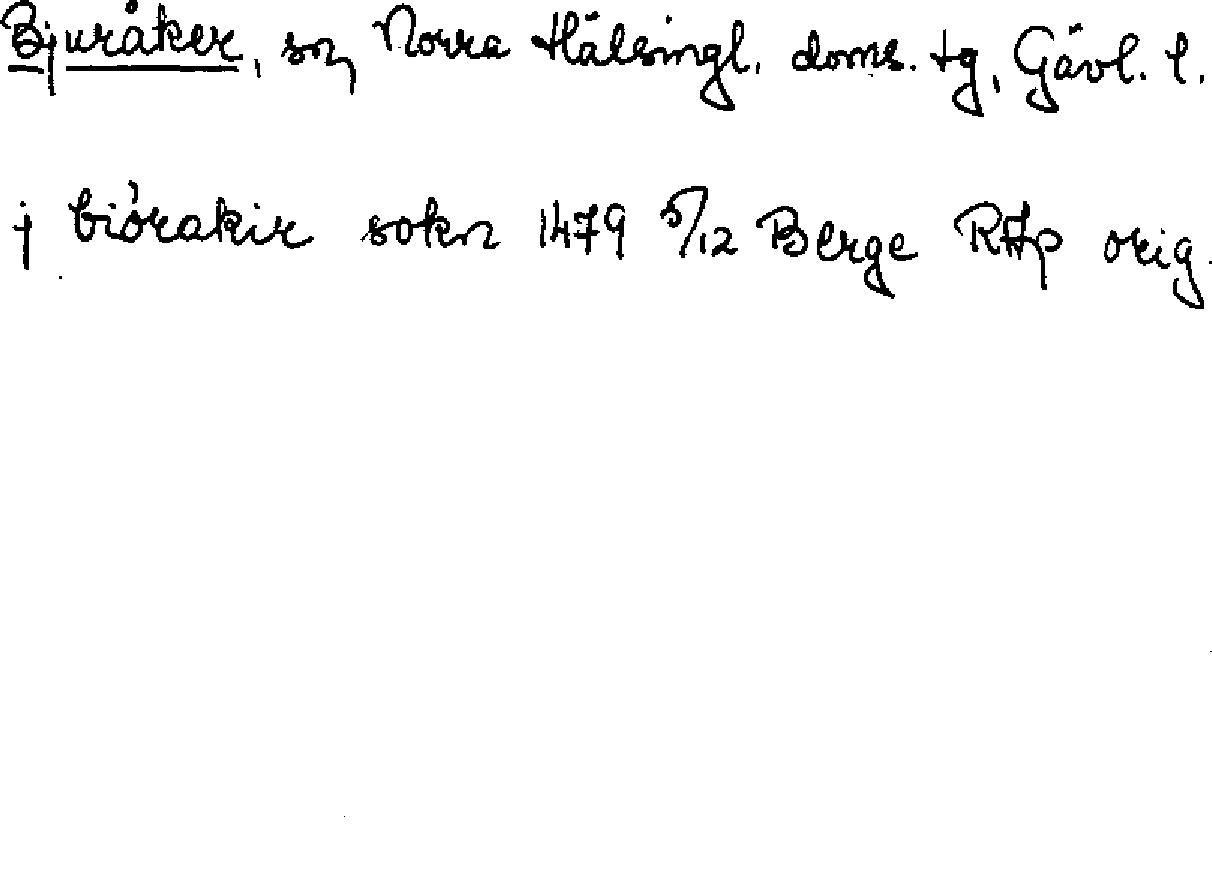 Bjuråker, sn, Norra Hälsingl. doms. tg, Gävl. l.
j biórakir sokn 1479 5/12 Berge RAp orig.